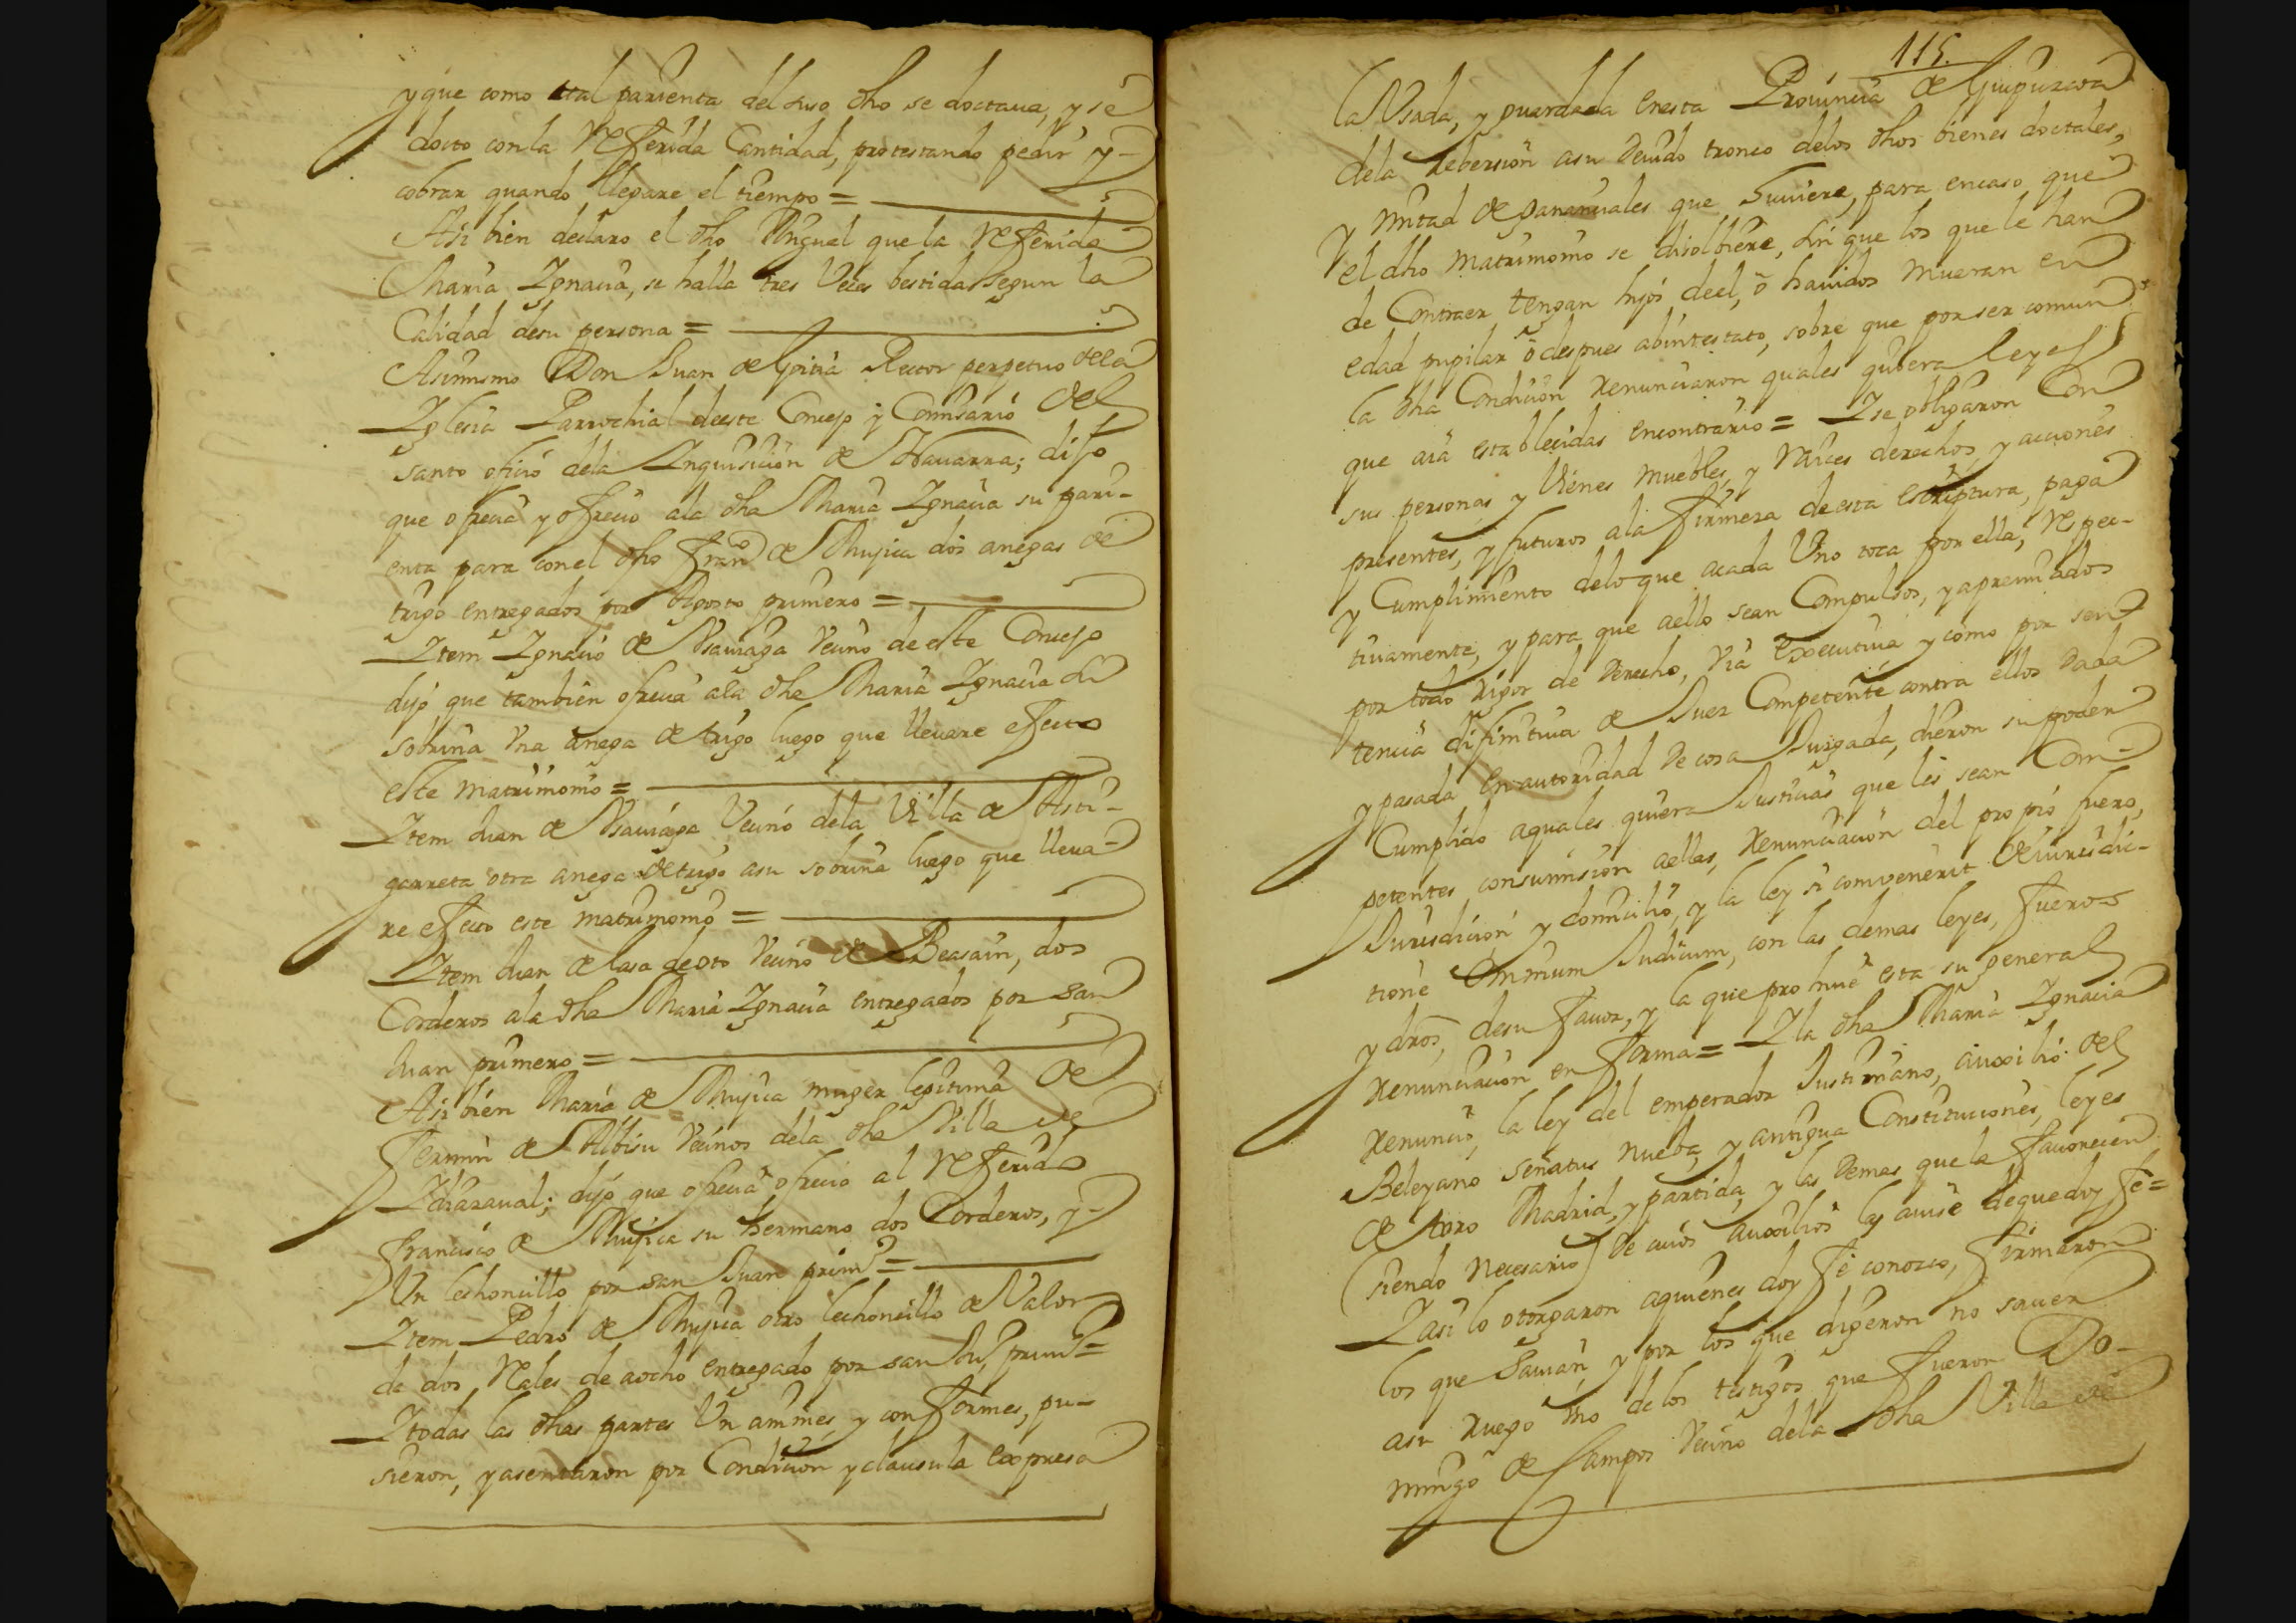 y que como tal parienta del suso dho se doctaua, y se
docto con la Referida Cantidad, protestando pedir y
cobrar quando llegare el tiempo =
Asi bien declaro el dho Mıguel que la Referida
Maria Ignacia, se halla tres Veces bestida segun la
Calidad desu persona =
Asimismo Don Juan de Goitia Rector perpetuo dela
Iglesia Parrochial deeste Concejo y Comisario del
santo oficio dela Inquisicion de Nauarra; dijo
que ofrecia y ofrecio ala dha Maria Ignacia su pari-
enta para con el dho Franco de Mujica dos anegas de
trigo entregados por Agosto primero =
Item Ignacio de Vsauiaga Vecino de este Concejo
dijo que tambien ofrecia ala dha Maria Ignacia su
sobrina Vna anega de trigo luego que lleuare efecto
este matrimonio =
Item Juan de Vsauiaga Vecino dela Villa de Asti-
garreta otra anega de trigo asu sobrina luego que lleua-
re efecto este matrimonio =
Item Juan de lasa Vecino de Beasain, dos
Corderos ala dha Maria Ignacia entregados por san
Juan primero =
Asi bien Maria de Mujica muger legitima de
Fermin de Albisu Vecinos dela dha Villa de
Idiazaual; dijo que ofrecia ofrecio al Referido
Francisco de Mujica su hermano dos Corderos, y
Un lechoncillo por san Juan primo =
Item Pedro de Mujica otro lechoncillo de Valor
de dos Reales de aocho entregado por san Ju. primo =
I todas las dhas partes Vn anımes, y conformes, pu-
sieron, y asentaron por Condicion y clausula expresa
115.
la Vsada, y guardada enesta Prouincia de Guipuzcoa
dela Rebersion asu deuido tronco delos dhos bienes doctales,
y mitad de gananciales que huuiere, para encaso que
el dho matrimonio se disolbiere, sin que los que le han
de Contraer tengan hijos deel, o hauidos mueran en
edad pupilar o despues abintestato, sobre que por ser comun
la dha Condicion renunciaron quales quiera leyes
que aia establecidas encontrario = I se obligaron Con
sus personas y Vienes muebles, y Raices derechos, y acciones
presentes, y futuros ala firmeza deesta escriptura, paga
y Cumplimiento delo que acada Uno toca por ella, Respec-
tiuamente, y para que aello sean Compulsos, y apremiados
por todo rigor de derecho, Via executiua y como por sen-
tencia difinitiua de Juez Competente contra ellos dada
y pasada en autoridad de cosa Juzgada, dieron su poder
Cumplido aquales quiera Justicias que les sean Com-
petentes consumision aellas, renunciacion del propio fuero,
Jurisdicion y domicilio, y la ley si convenerit de iurisdic-
tione Omnium Judicum, con las demas leyes, fueros
y dros, desu fauor, y la que prohiue esta su general
renunciacion en forma = I la dha Maria Ignacia
renuncio, la ley del emperador Justiniano, auxilio del
Beleyano señatus nueba, y antigua Constituciones, leyes
de toro Madrid, y partida, y las demas que la fauorecen
(siendo necesario) de cuios auxilios la auise deque doy fe =
I asi lo otorgaron aquienes doy fe conozco, firmaron
los que Sauian, y por los que digeron no sauer
asu ruego vno delos testigos que fueron Do-
mingo de Campos Vecino dela dha Villa de